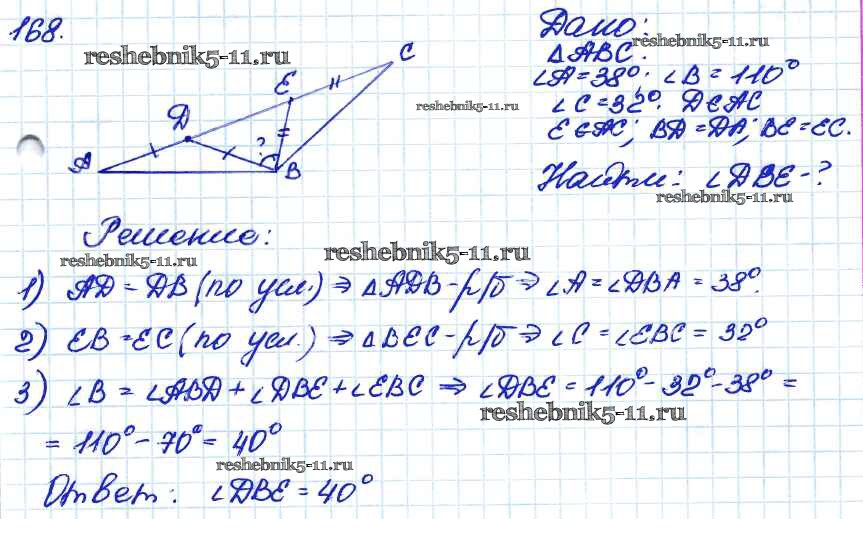 168.
reshebnik5-11.ru
Дано:
△ABC.
reshebnik5-11.ru
∠A=38°; ∠B=110°
∠C=32°. D∈AC
reshebnik5-11.ru
E∈AC; BD=DA; BE=EC.
Найти: ∠DBE-?
reshebnik5-11.ru
A
D
E
C
B
?
Решение:
reshebnik5-11.ru
reshebnik5-11.ru
1) AD=DB (по усл.) ⇒ △ADB-р/б ⇒ ∠A=∠DBA=38°.
2) EB=EC (по усл.) ⇒ △BEC-р/б ⇒ ∠C=∠EBC=32°
3) ∠B=∠ABD+∠DBE+∠EBC ⇒ ∠DBE=110°-32°-38°=
reshebnik5-11.ru
=110°-70°=40°
reshebnik5-11.ru
Ответ: ∠DBE=40°